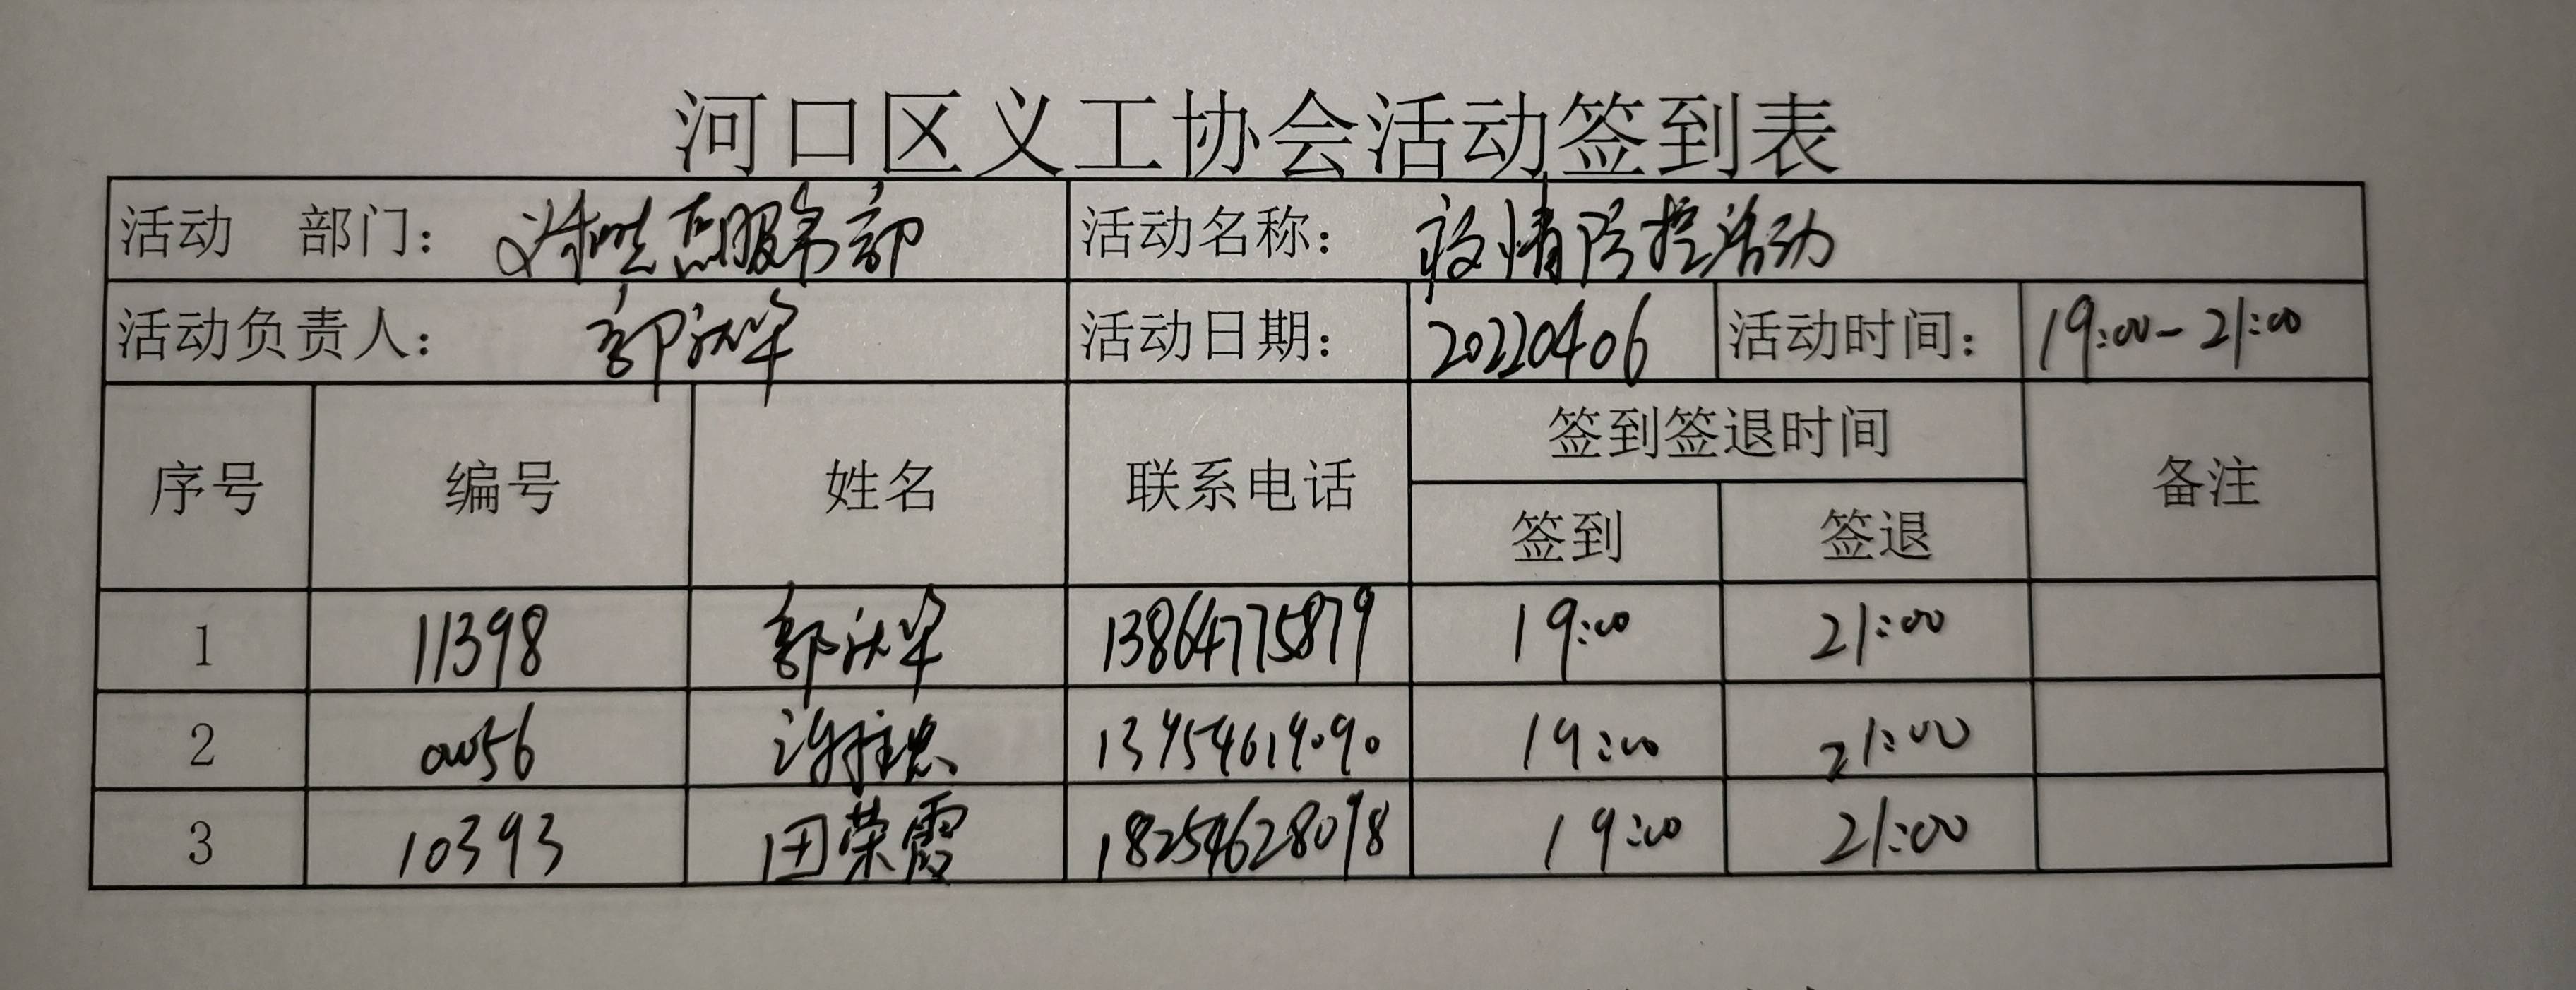 河口区义工协会活动签到表
活动 部门： 服务部 活动名称： 疫情防控活动
活动负责人： 郭 活动日期： 20220406 活动时间： 19:00-21:00
签到签退时间
序号 编号 姓名 联系电话 备注
签到 签退
1 11398 郭 13864775879 19:00 21:00
2 0056 13954619090 19:00 21:00
3 10393 田荣霞 18254628098 19:00 21:00